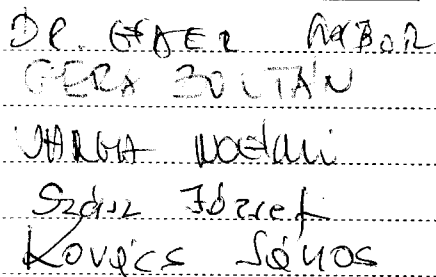 Dr. GÁBOR
GERA ZOLTÁN
VARGA NOÉMI
Szász József
Kovács János